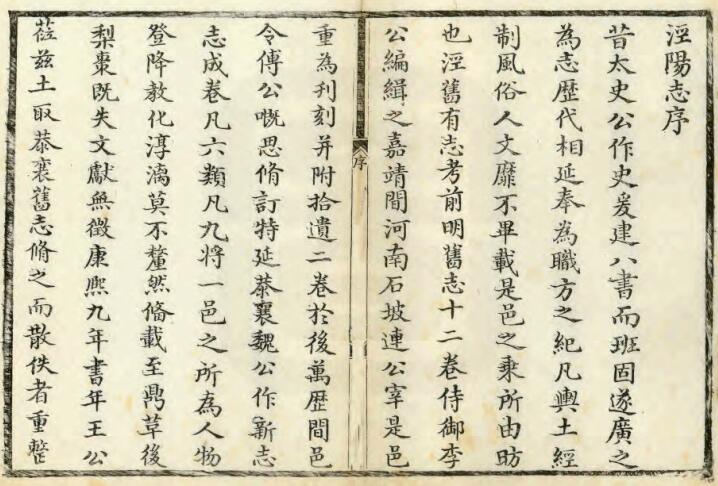 涇陽志序
昔太史公作史爰建八書而班固遂廣之
為志歷代相延奉為職方之紀凡輿土經
制風俗人文靡不畢載是邑之乘所由昉
也涇舊有志考前明舊志十二卷侍御李
公編緝之嘉靖間河南石坡連公宰是邑
序
重為刋刻并附拾遺二卷於後萬歴間邑
令傅公嘅思脩訂特延恭襄魏公作新志
志成卷凡六類凡九將一邑之所為人物
登降教化淳漓莫不釐然俻載至鼎草後
梨棗既失文獻無徵康熙九年書年王公
蒞兹土取恭襄舊志脩之而散佚者重整